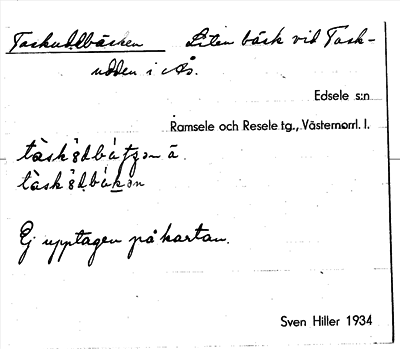 Taskuddbäcken Liten bäck vid Task-
udden i Ås.
Edsele s:n
Ramsele och Resele tg., Västernorrl. l.
Ej upptagen på kartan.
Sven Hiller 1934